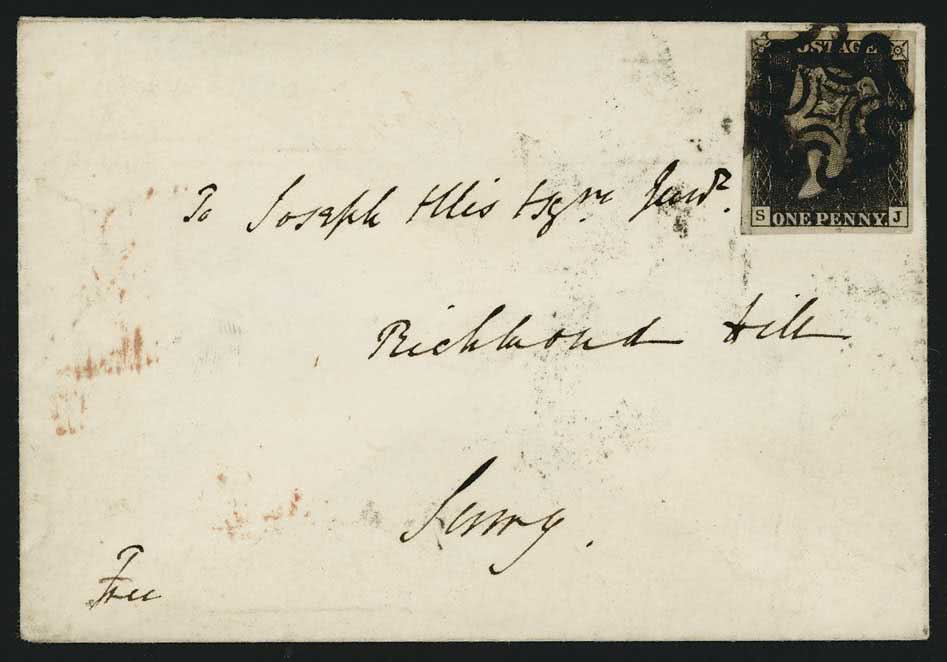 POSTAGE
S ONE PENNY. J
To Joseph Ellis Esqre Junr.
Richmond Hill
Surrey.
Free